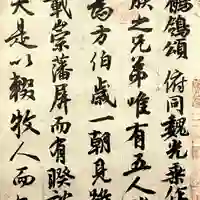 鶺鴒頌 俯同魏光乘作
朕之兄弟唯有五人
為方伯歲一朝見雖
載崇藩屏而有睽談
笑是以輟牧人而各